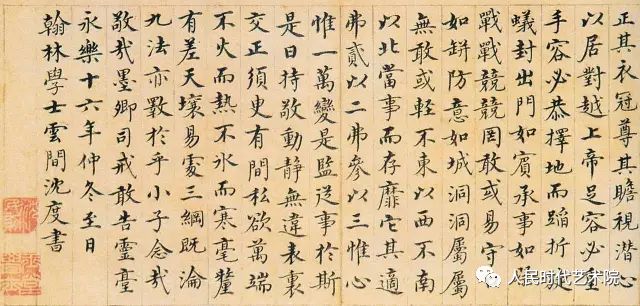 正其衣冠尊其瞻視潛心
以居對越上帝足容必重
手容必恭擇地而蹈折
蟻封出門如賓承事如
戰戰兢兢罔敢或易守
如缾防意如城洞洞屬屬
無敢或輕不東以西不南
以北當事而存靡它其適
弗貳以二弗參以三惟心
惟一萬變是監從事於斯
是曰持敬動靜無違表裏
交正須臾有間私欲萬端
不火而熱不冰而寒毫釐
有差天壤易處三綱既淪
九法亦斁於乎小子念哉
敬哉墨卿司戒敢告靈臺
永樂十六年仲冬至日
翰林學士雲間沈度書
人民时代艺术院